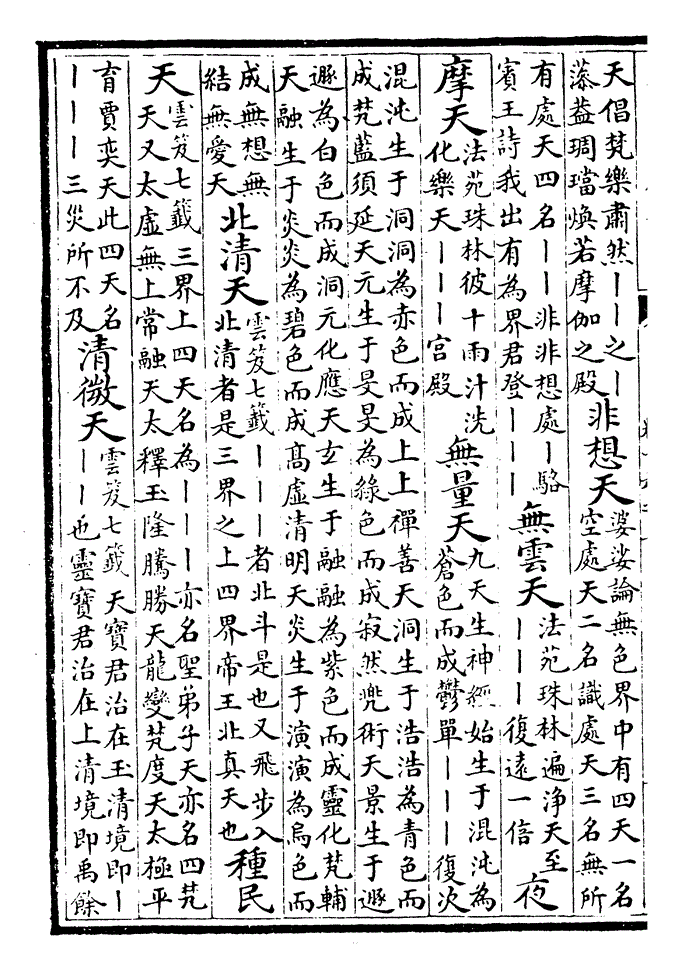 天倡梵樂肅然丨丨之丨
蔆葢琱璫煥若摩伽之殿
非想天
婆娑論無色界中有四天一名
空處天二名識處天三名無所
有處天四名丨丨非非想處丨駱
賓王詩我出有為界君登丨丨丨
無雲天
法苑珠林遍淨天至
丨丨丨復遠一倍
夜
摩天
法苑珠林彼十雨汁洗
化樂天丨丨宫殿
無量天
九天生神經始生于混沌為
蒼色而成鬱單丨丨丨復次
混沌生于洞洞為赤色而成上上禪善天洞生于浩浩為青色而
成梵藍須延天元生于旻旻為綠色而成寂然兠術天景生于遯
遯為白色而成洞元化應天玄生于融融為紫色而成靈化梵輔
天融生于炎炎為碧色而成髙虛清明天炎生于演演為烏色而
成無想無
結無愛天
北清天
雲笈七籤丨丨丨者北斗是也又飛步入
北清者是三界之上四界帝王北真天也
種民
天
雲笈七籤三界上四天名為丨丨丨亦名聖弟子天亦名四梵
天又太虛無上常融天太釋玉隆騰勝天龍變梵度天太極平
育賈奕天此四天名
丨丨丨三災所不及
清微天
雲笈七籤天寶君治在玉清境即丨
丨丨也靈寶君治在上清境即禹餘